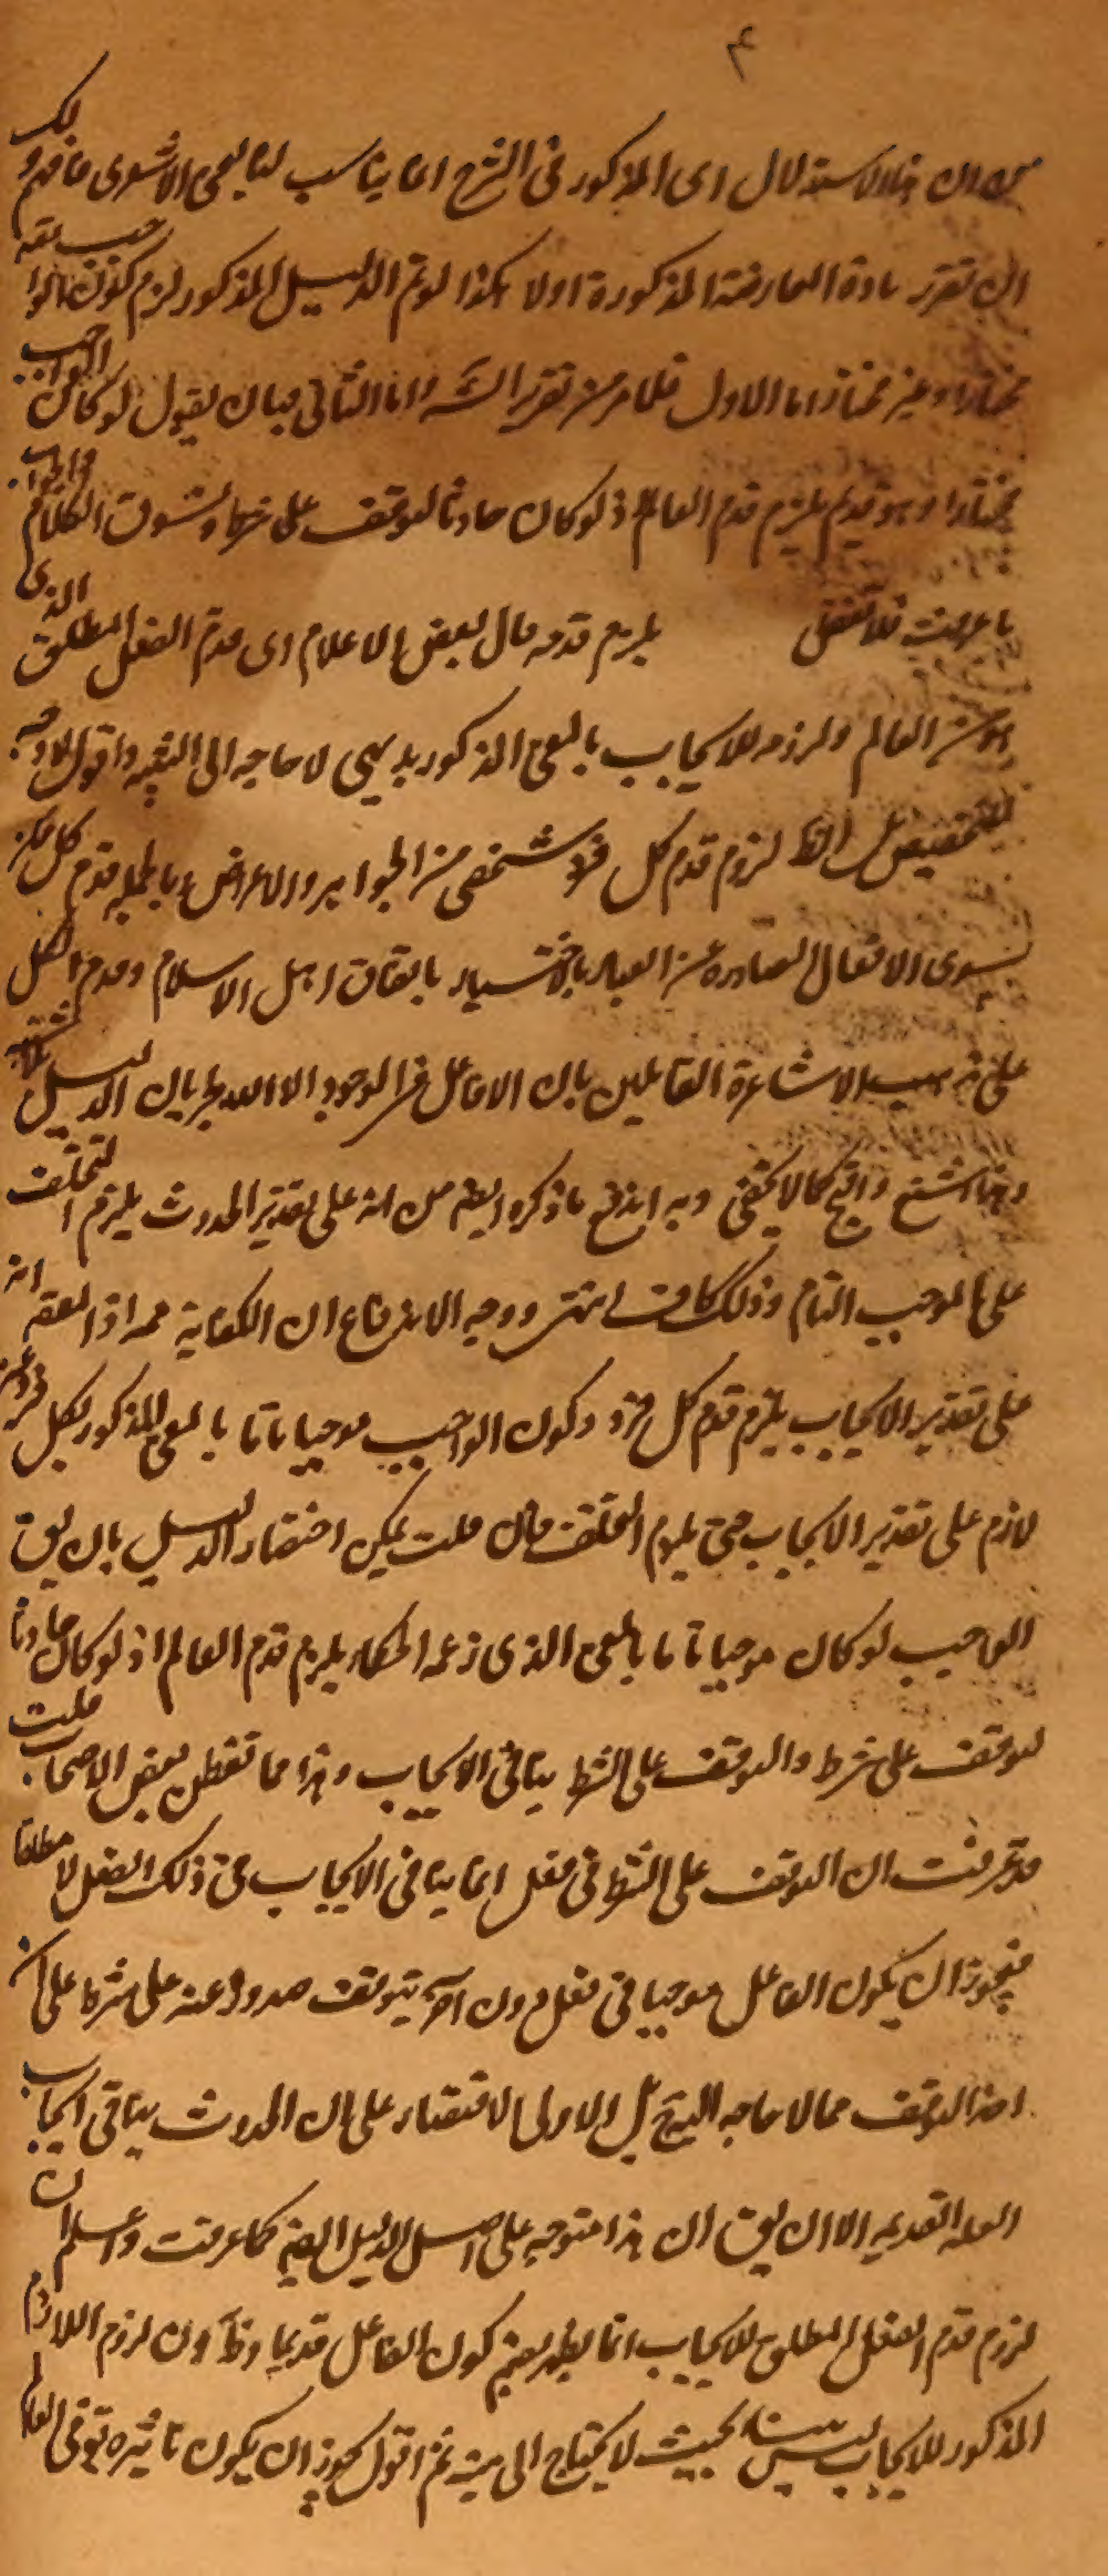 ٤
من ان هذا الاستدلال اى المذكور فى الشرح انما يناسب لتابعى الاشعرى فافهم ولك
ان تقرر مادة المعارضة المذكورة اولا هكذا لو تم الدليل المذكور لزم كون الواجب تعه
مختارا وغير مختار اما الاول فلما مر من تقرير الشه واما الثانى فبان يقول لو كان الواجب
مختارا وهو قديم يلزم قدم العالم اذ لو كان حادثا لتوقف على شرط ونسوق الكلام والجواب
ما عرفت فلا تغفل يلزم قدمه قال بعض الاعلام اى قدم الفعل المطلق الذى
هو من العالم ولزومه للايجاب بالمعنى المذكور بديهى لا حاجة الى التنبيه واقول لا وجه
للتخصيص بل الظ لزوم قدم كل فرد شخصى من الجواهر والاعراض وبالجملة قدم كل ممكن
سوى الافعال الصادرة عن العباد باختيار باتفاق اهل الاسلام وقدم الكل
على مذهب الاشاعرة القايلين بان لا فاعل فى الوجود الا الله بجريان الدليل
وهذا شنع واقبح كما لا يخفى وبه اندفع ما ذكره ايضا من انه على تقدير الحدوث يلزم التخلف
على الموجب التام وذلك كاف انتهى ووجه الاندفاع ان الكفاية مم اذ العقه انه
على تقدير الايجاب يلزم قدم كل فرد وكون الواجب موجبا تاما بالمعنى المذكور لكل فرد غير
لازم على تقدير الايجاب حتى يلزم التخلف فان قلت يمكن اختصار الدليل بان يق
الواجب لو كان موجبا تاما بالمعنى الذى زعمه الحكماء يلزم قدم العالم اذ لو كان حادثا
لتوقف على شرط والتوقف على الشرط ينافى الايجاب وهذا مما تفطن بعض الاصحاب قلت
قد عرفت ان التوقف على الشرط فى فعل انما ينافى الايجاب فى ذلك الفعل لا مطلقا
فيجوز ان يكون الفاعل موجبا فى فعل دون آخر يتوقف صدوره عنه على شرط على ان
اخذ التوقف مما لا حاجة اليه ح بل الاولى الاقتصار على ان الحدوث ينافى ايجاب
العلة القديمه الا ان يق ان هذا متوجه على اصل الدليل ايضا كما عرفت واعلم ان
لزوم قدم الفعل المطلق للايجاب انما يظهر بضم كون الفاعل قديما وظ ان لزوم اللازم
المذكور للايجاب ليس بينا بحيث لا يحتاج الى بينه ثم اقول يجوز ان يكون تاثيره تع فى العالم